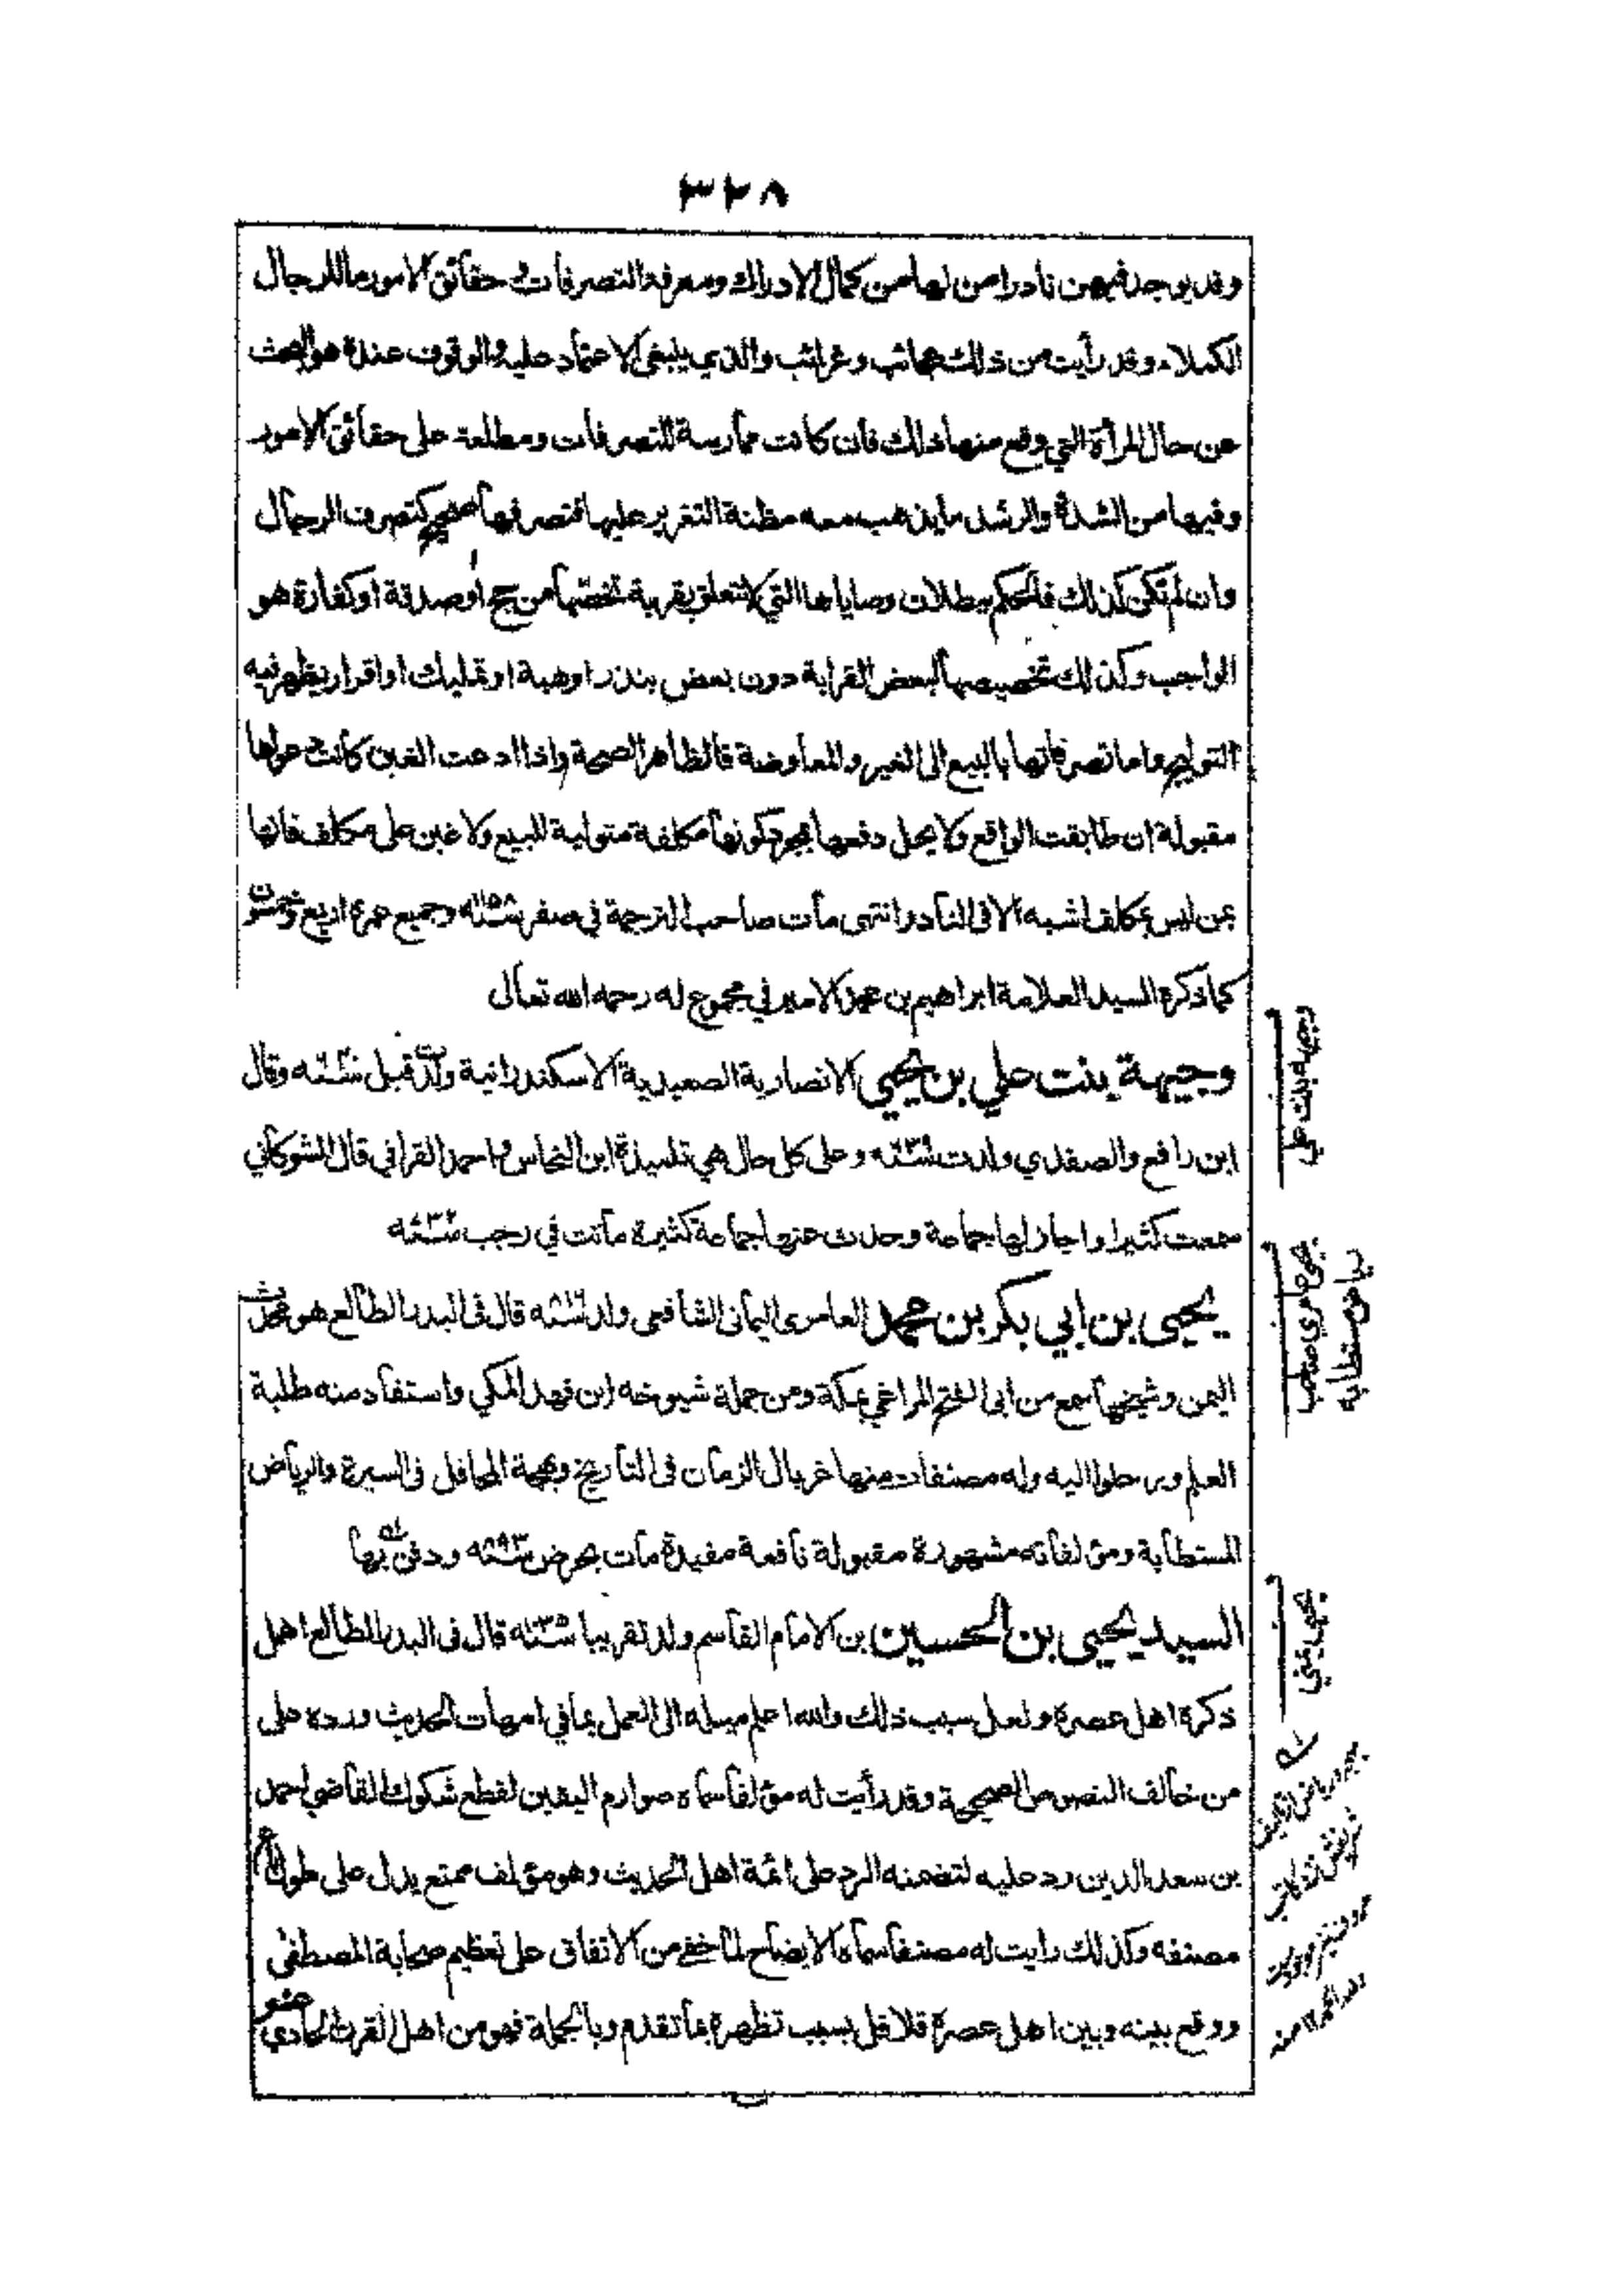 ٣٢٨
وقد يوجد فيهن نادرا من لها من كمال الادراك ومعرفة التصرفات و حقائق الامور ما للرجال
الكملاء وقد رأيت من ذلك عجائب وغرائب والذي ينبغي الاعتماد عليه والوقوف عنده هو البحث
عن حال المرأة التي وقع منها ذلك فان كانت ممارسة للتصرفات ومطلعة على حقائق الامور
وفيها من الشدة والرشد ما يذهب معه مظنة التغرير عليها فتصرفها صحيح كتصرف الرجال
وان لم تكن كذلك فالحكم ببطلان وصاياها التي لا تتعلق بقربة تخصها من حج او صدقة او كفارة هو
الواجب وكذلك تخصيصها لبعض القرابة دون بعض بنذر او هبة او تمليك او اقرار يظهر فيه
التوليج واما تصرفاتها بالبيع الى الغير والمعاوضة فالظاهر الصحة واذا ادعت الغبن كانت دعواها
مقبولة ان طابقت الواقع ولا يحل دفعها بمجرد كونها مكلفة متولية للبيع ولا غبن على مكلف فانها
بمن ليس بمكلف اشبه الا في النادر انتهى مات صاحب الترجمة في صفر وجميع عمره اربع وخمسون
كما ذكره السيد العلامة ابراهيم بن محمد الامير في مجموع له رحمه الله تعالى
وجيهة بنت علي بن يحيى الانصارية الصعيدية الاسكندرانية ولدت قبل وقال
ابن رافع والصفدي ولدت وعلى كل حال هي تلميذة ابن النحاس و احمد القرافي قال الشوكاني
سمعت كثيرا واجاز لها جماعة وحدث عنها جماعة كثيرة ماتت في رجب
يحيى بن ابي بكر بن محمد العامري اليماني الشافعي ولد قال في البدر الطالع هو محدث
اليمن وشيخها سمع من ابي الفتح المراغي بمكة ومن جملة شيوخه ابن فهد المكي واستفاد منه طلبة
العلم ورحلوا اليه وله مصنفات منها غربال الزمان في التاريخ وبهجة المحافل في السيرة والرياض
المستطابة ومؤلفاته مشهورة مقبولة نافعة مفيدة مات بحرض ودفن بها
السيد يحيى بن الحسين بن الامام القاسم ولد تقريبا قال في البدر الطالع اهمل
ذكره اهل عصره ولعل سبب ذلك والله اعلم ميله الى العمل بما في امهات الحديث ورده على
من خالف النصوص الصحيحة وقد رأيت له مؤلفا سماه صوارم اليقين لقطع شكوك القاضي احمد
بن سعد الدين رد عليه لتضمنه الرد على ائمة اهل الحديث وهو مؤلف ممتع يدل على طول باع
مصنفه وكذلك رايت له مصنفا سماه الايضاح لما خفي من الاتفاق على تعظيم صحابة المصطفى
ووقع بينه وبين اهل عصره قلاقل بسبب تظهره بما تقدم وبالجملة فهو من اهل القرن الحادي عشر
وجيهة بنت علي
يحيى عامري مصنف
رياض مستطابه
يحيى يمني